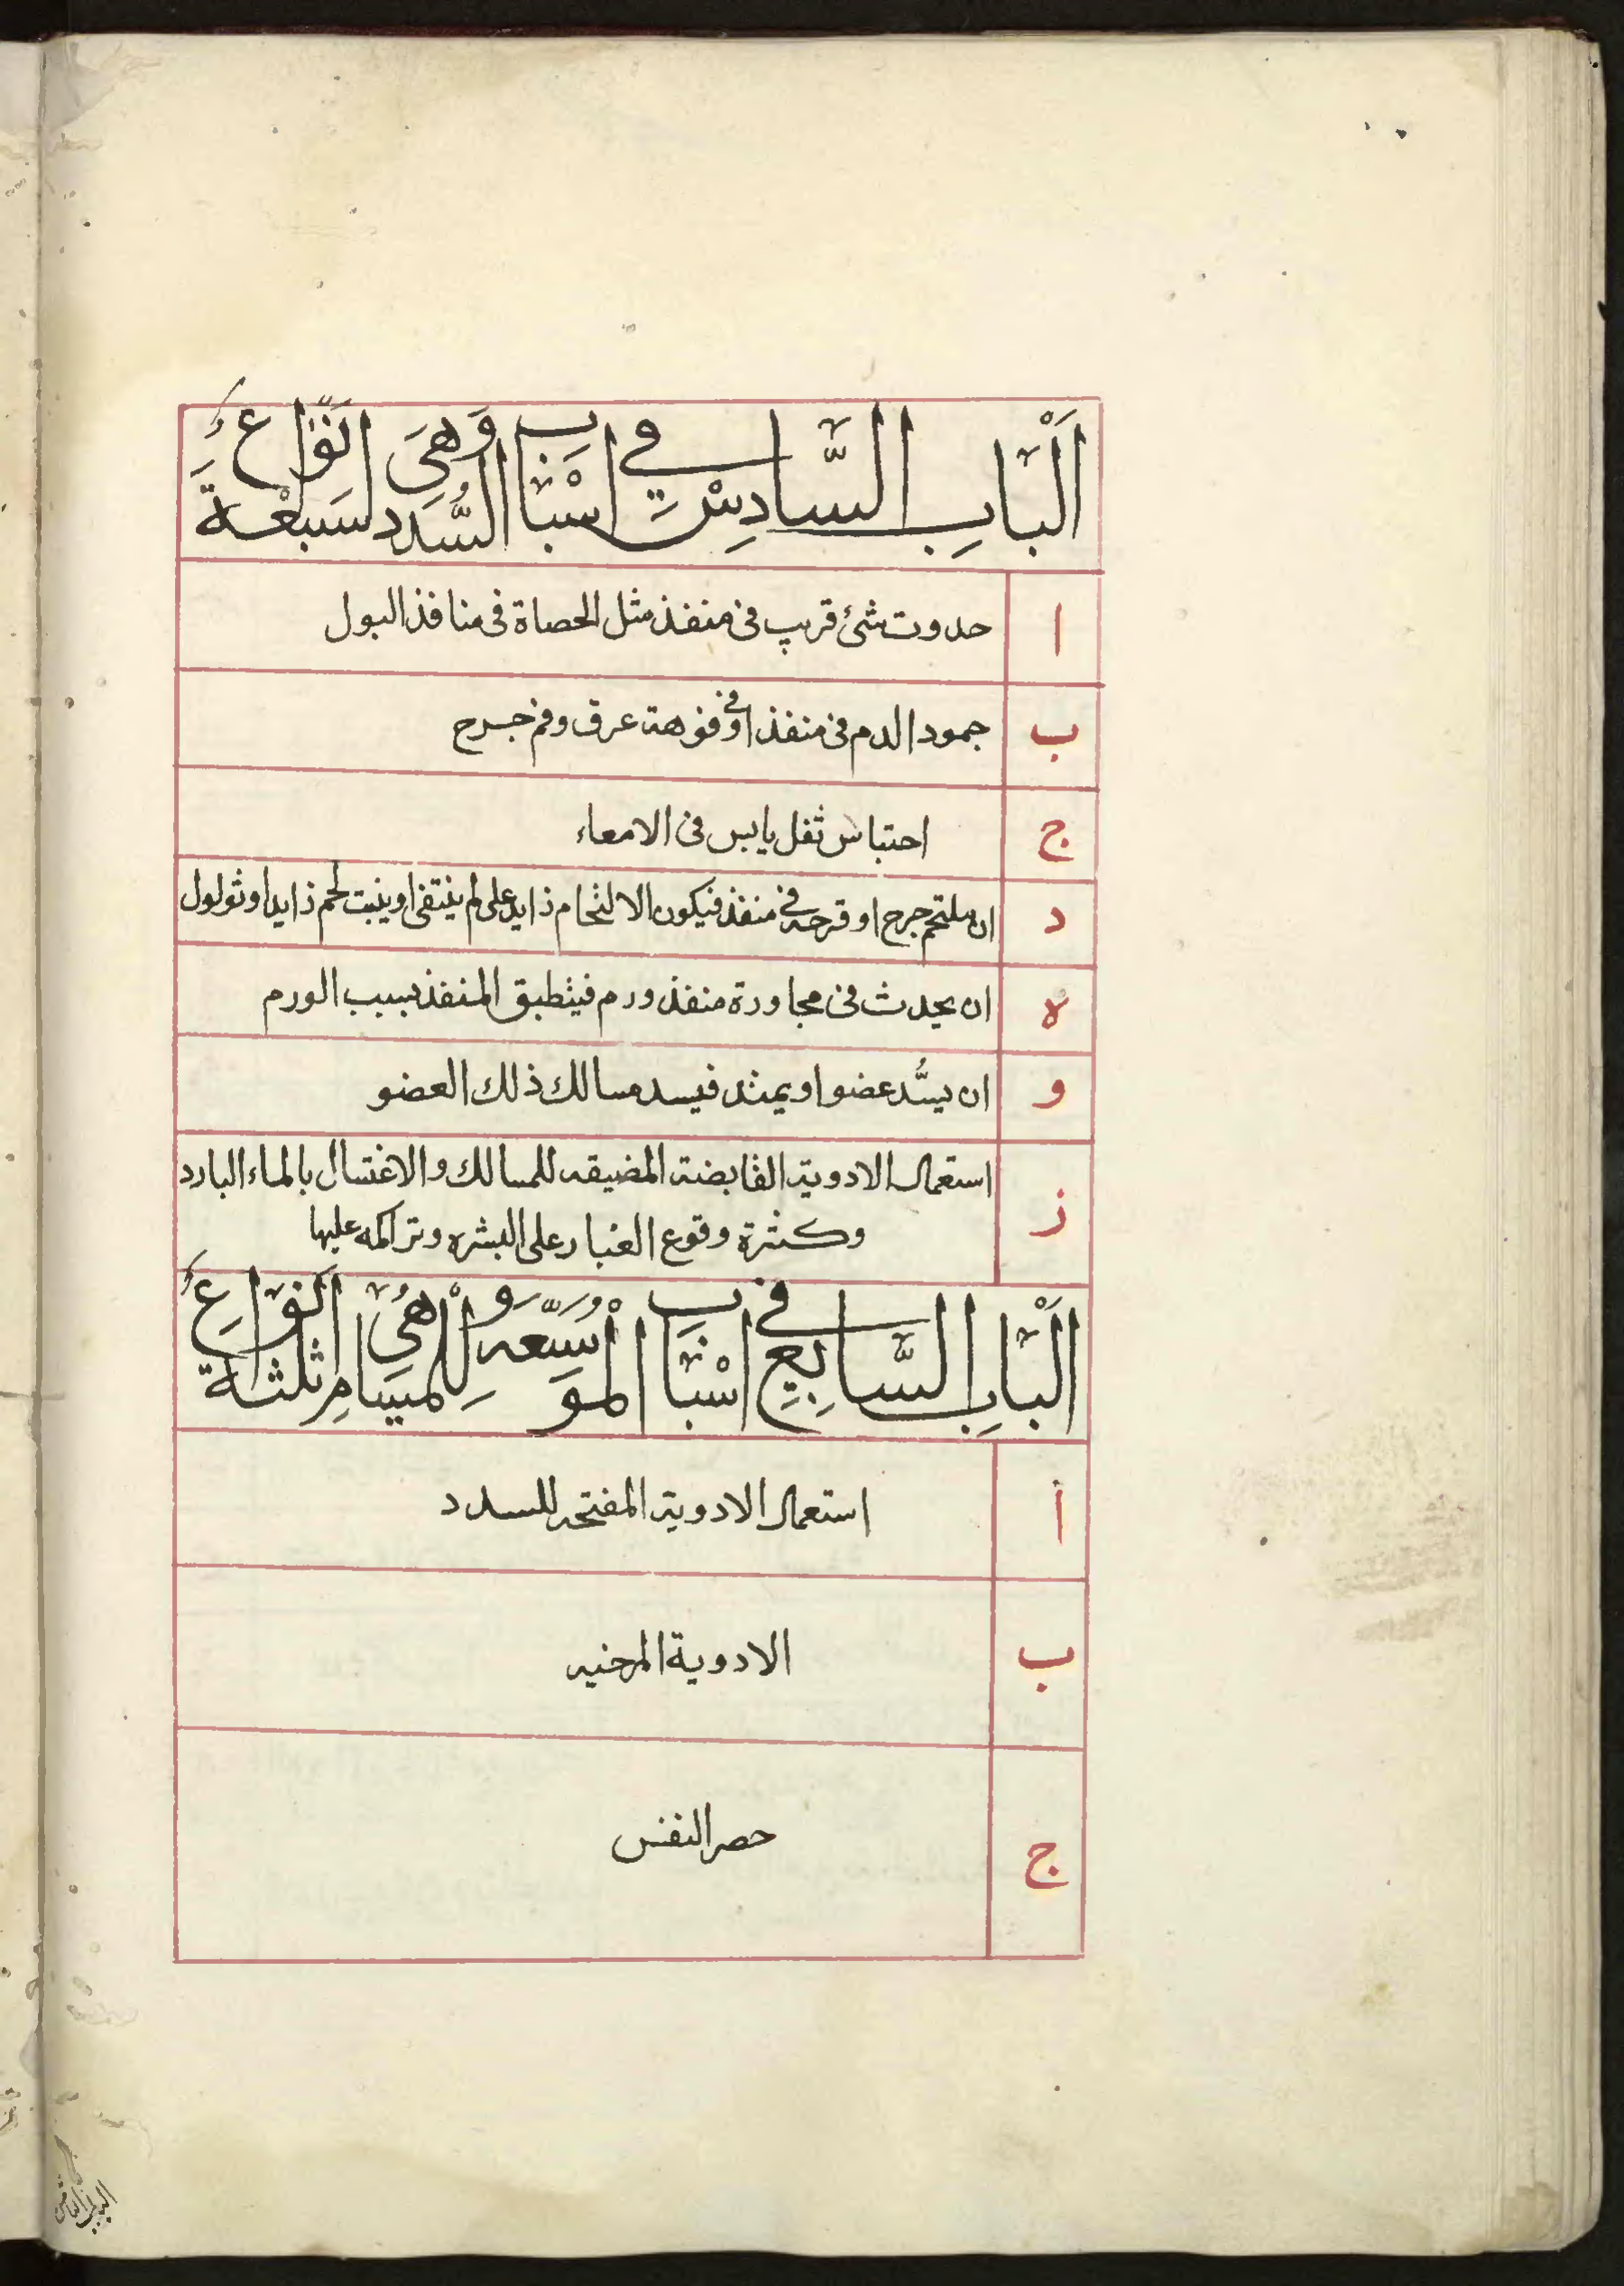 اَلْبابِ السَّادِسْ في اسْبَاب السُّدد وَهِيَ سَبْعَة اَنْوَاعٍ
ا
حدوث شئ قريب فى منفذ مثل الحصاة فى منافذ البول
ب
جمود الدم فى منفذ او فى فوهة عرق وفم جرح
ج
احتباس ثفل يابس فى الامعاء
د
ان يلتحم جرح او قرحه فى منفذ فيكون الالتحام زايد على لم ينتفى او ينبت لحم زايدا وثولول
ه
ان يحدث فى مجاورة منفذ ورم فينطبق المنفذ بسبب الورم
و
ان يسُّد عضو او يمتد فيسد مسالك ذلك العضو
ز
استعمال الادوية القابضة المضيقه للمسالك والاغتسال بالماء البارد
وكثرة وقوع الغبار على البشره وتراكمه عليها
اَلْبابِ السَّابِعِ في اسْبَاب الْمُوَسِّعَه لِلْمسَامِ وَهْيُ ثلثة اَنْوَاعِ
أ
استعمال الادوية المفتحه للسدد
ب
الادوية المرخيه
ج
حصر النفس